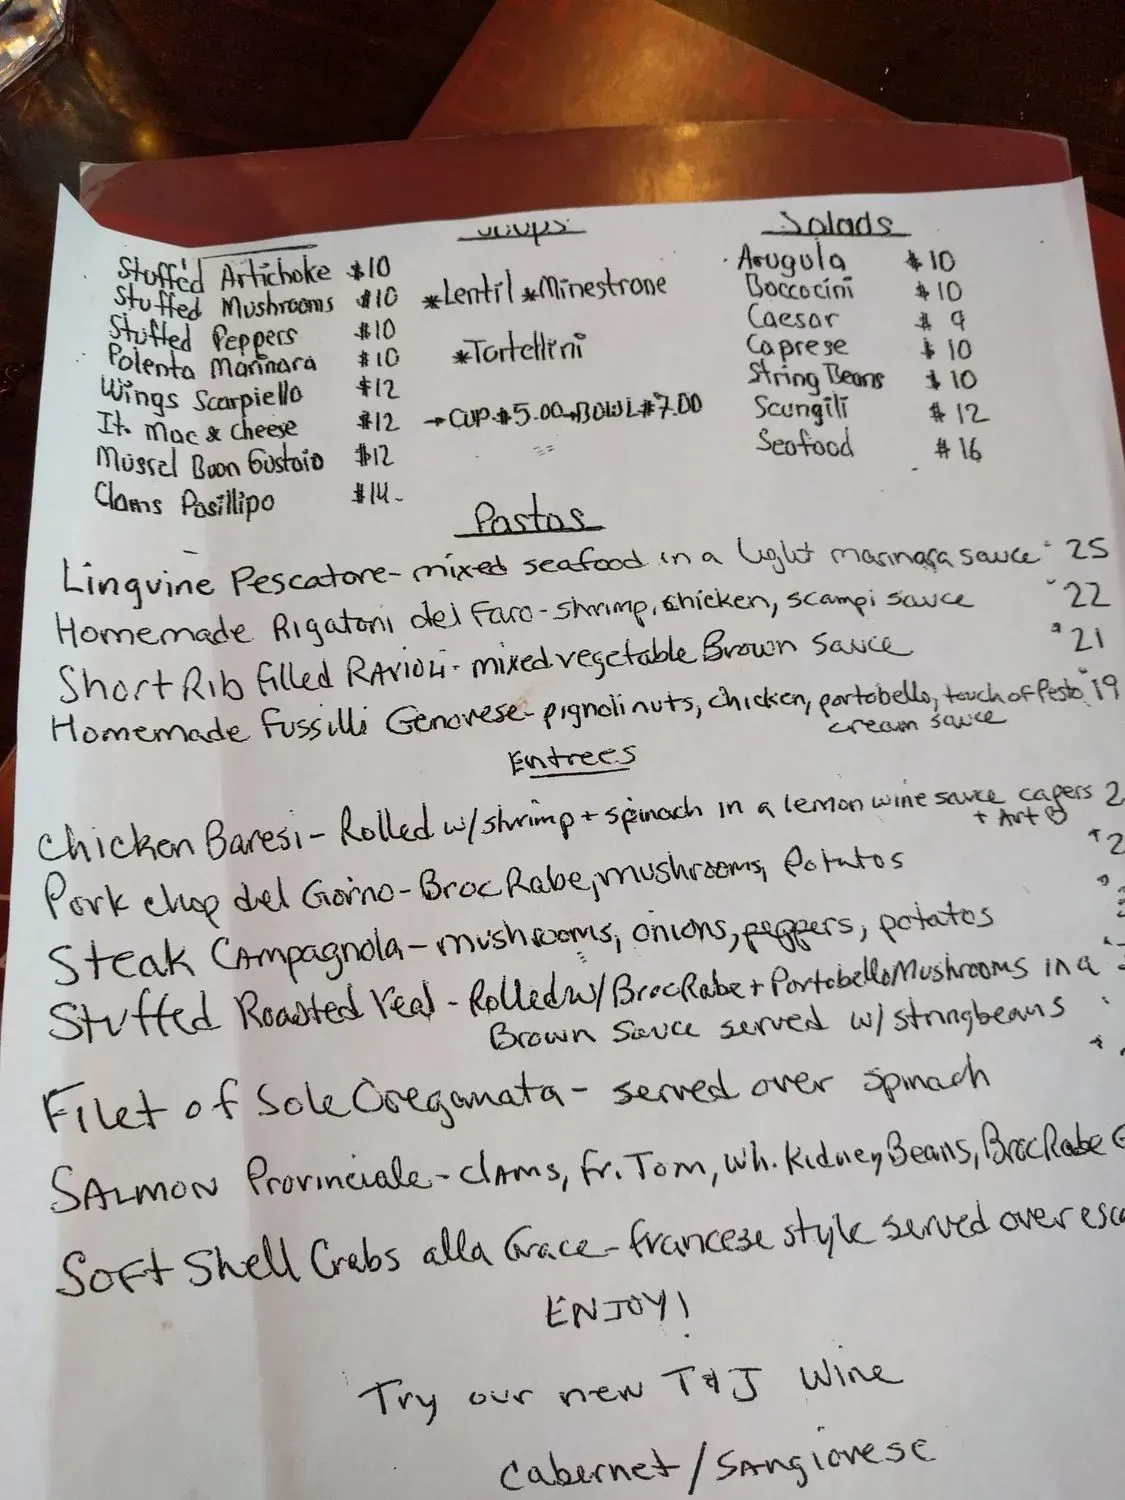 Soups
Salads
Stuffed Artichoke $10
Stuffed Mushrooms $10
Stuffed Peppers $10
Polenta Marinara $10
Wings Scarpiello $12
It. Mac & cheese $12
Mussel Buon Gustaio $12
Clams Posillipo $14
*Lentil *Minestrone
*Tortellini
→CUP $5.00→BOWL $7.00
Arugula $10
Boccocini $10
Caesar $9
Caprese $10
String Beans $10
Scungili $12
Seafood $16
Pastas
Linguine Pescatore- mixed seafood in a light marinara sauce 25
Homemade Rigatoni del Faro-shrimp, chicken, scampi sauce 22
Short Rib filled RAvioli- mixed vegetable Brown Sauce 21
Homemade Fussilli Genovese- pignoli nuts, chicken, portobello, touch of Pesto 19
cream sauce
Entrees
Chicken Baresi- Rolled w/shrimp + spinach in a lemon wine sauce capers 2
+ Art
Pork chop del Giorno-Broc Rabe, mushrooms, Potatos 2
Steak Campagnola- mushrooms, onions, peppers, potatos
Stuffed Roasted Veal - Rolled w/ Broc Rabe + Portobello Mushrooms in a
Brown Sauce served w/ stringbeans
Filet of Sole Oreganata- served over spinach
SALMON Provinciale- clams, fr. Tom, wh. Kidney Beans, Broc Rabe
Soft Shell Crabs alla Grace- francese style served over esca
ENJOY!
Try our new T&J Wine
Cabernet/Sangiovese